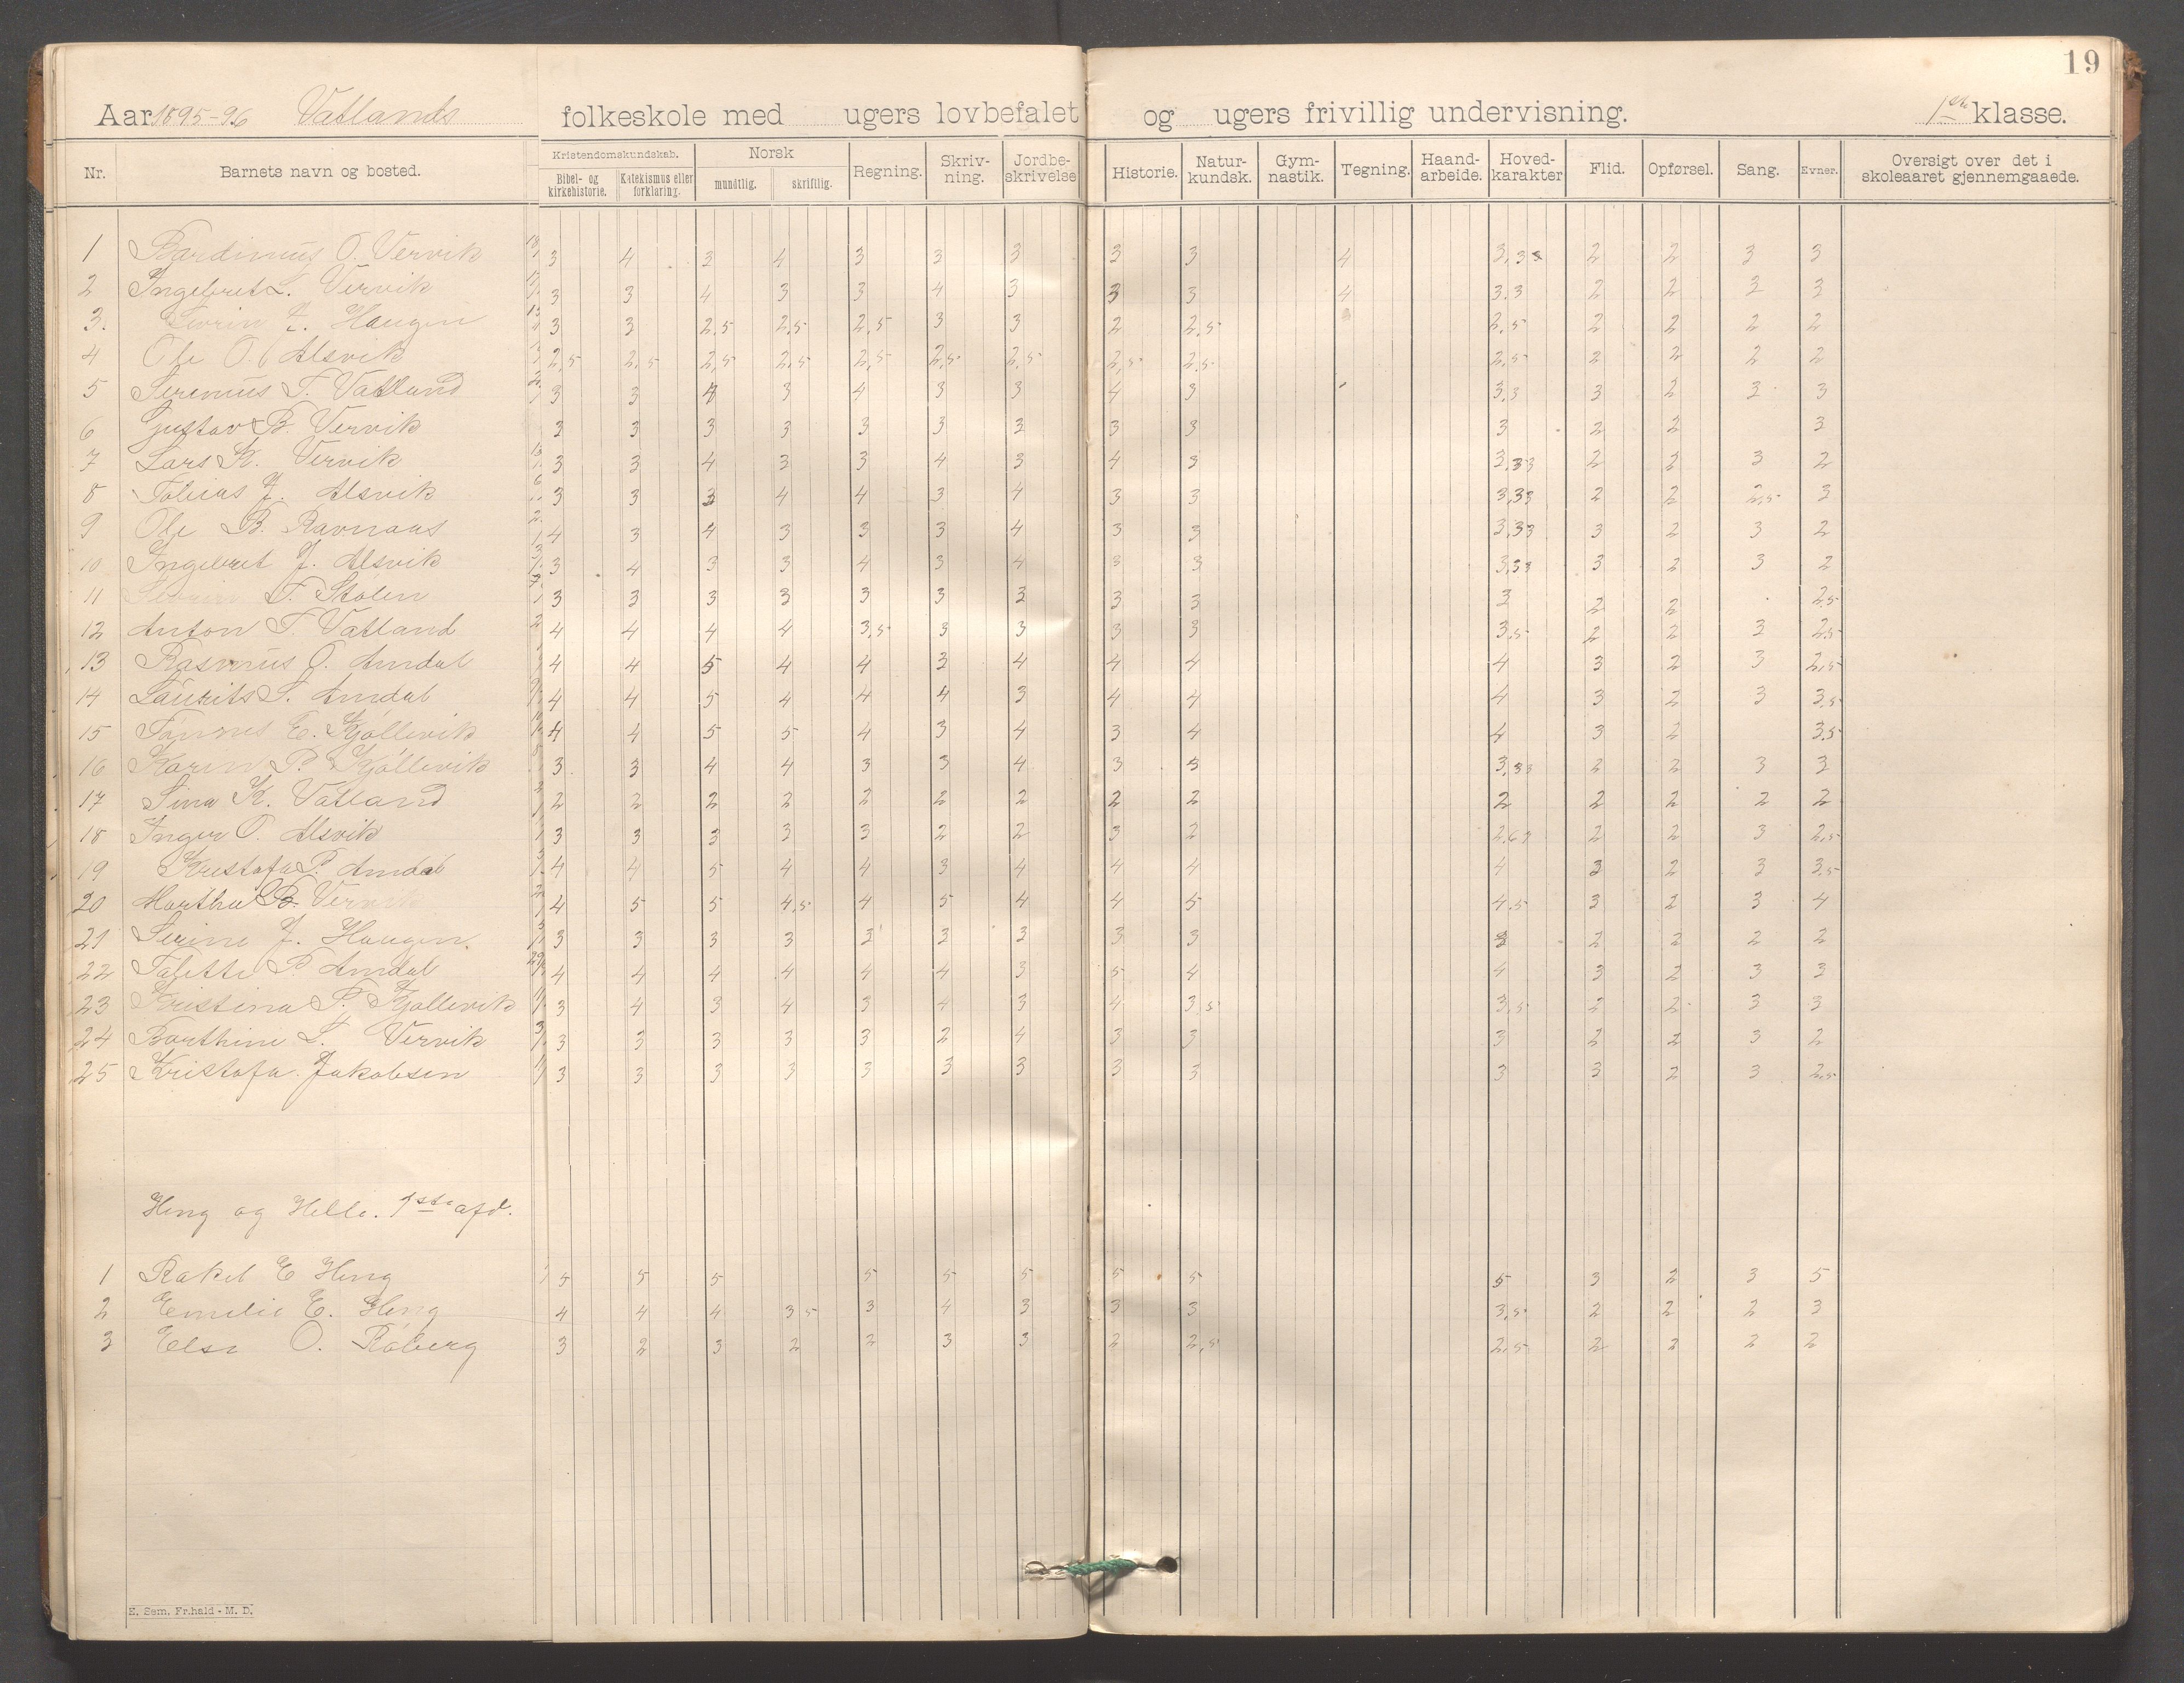 19
Aar 1895-96 Vatlands folkeskole med ugers lovbefalet og ugers frivillig undervisning. 1ste klasse.
Nr. Barnets navn og bosted. Kristendomskundskab. Bibel- og kirkehistorie. Katekismus eller forklaring. Norsk mundtlig. skriftlig. Regning. Skriv-ning. Jordbe-skrivelse Historie. Natur-kundsk. Gym-nastik. Tegning. Haand-arbeide. Hoved-karakter Flid. Opførsel. Sang. Evner. Oversigt over det i skoleaaret gjennemgaaede.
1 Bardinius O. Vervik 3 4 3 4 3 3 3 3 3 4 3,33 2 2 3 3
2 Ingebret L. Vervik 3 3 4 3 3 4 3 3 3 4 3.3 2 2 3 3
3. Sevrin J. Haugen 3 3 2,5 2,5 2,5 3 3 2 2,5 2,5 2 2 2 2
4 Ole O. Alsvik 2,5 2,5 2,5 2,5 2,5 2,5 2,5 2,5 2,5 2,5 2 2 2 2
5 Serenius T. Vatland 3 3 4 3 4 3 3 4 3 3,3 3 2 3 3
6 Gustav B. Vervik 3 3 3 3 3 3 3 3 3 3 2 2 3
7 Lars K. Vervik 3 3 4 3 3 4 3 4 3 3,33 2 2 3 2
8 Tobias J. Alsvik 3 3 3 4 4 3 4 3 3 3,33 2 2 2,5 3
9 Ole B. Ravnaas 4 3 4 3 3 3 4 3 3 3,33 3 2 3 2
10 Ingebret J. Alsvik 3 4 3 3 4 3 4 3 3 3,33 3 2 3 2
11 T. Stölen 3 3 3 3 3 3 3 3 3 3 2 2 2,5
12 Anton T. Vatland 4 4 4 4 3,5 3 3 3 3 3.5 2 2 3 2,5
13 Rasmus O. Amdal 4 4 5 4 4 3 4 4 4 4 3 2 3 2,5
14 Laurits S. Amdal 4 4 5 4 4 4 3 4 4 4 3 2 3 3,5
15 Tönnes E. Kjöllevik 4 4 5 5 4 3 4 3 4 4 3 2 3.5
16 Karin P. Kjöllevik 3 3 4 4 3 3 4 3 3 3,33 2 2 3 3
17 Sina K. Vatland 2 2 2 2 2 2 2 2 2 2 2 2 2 2
18 Inger O. Alsvik 3 3 3 3 3 2 2 3 2 2,63 2 2 3 2,5
19 Kristofa P. Amdal 4 4 5 4 4 3 4 4 4 4 3 2 3 3,5
20 Martha B. Vervik 4 5 5 4,5 4 5 4 4 5 4.5 3 2 3 4
21 Serine J. Haugen. 3 3 3 3 3 3 3 3 3 3 2 2 2 2
22 Talette P Amdal 4 4 4 4 4 4 3 5 4 4 3 2 3 3
23 Kristina P. Kjöllevik 3 4 3 4 3 4 3 4 3,5 3,5 2 2 3 3
24 Barthine L. Vervik 3 3 3 3 3 2 4 3 3 3 2 2 3 2
25 Kristofa Jakobsen 3 3 3 3 3 3 3 3 3 3 3 2 3 2,5
Heng og Helle. 1ste afd.
1 Rakel E Heng 5 5 5 5 5 5 5 5 5 3 2 3 5
2 Emelie E. Heng 4 4 4 3 5 3 4 3 3 3 3,5 2 2 2 3
3 Else O. Röberg 3 2 3 2 2 3 3 2 2,5 2,5 2 2 2 2
E. Sem, Fr.hald - M. D.